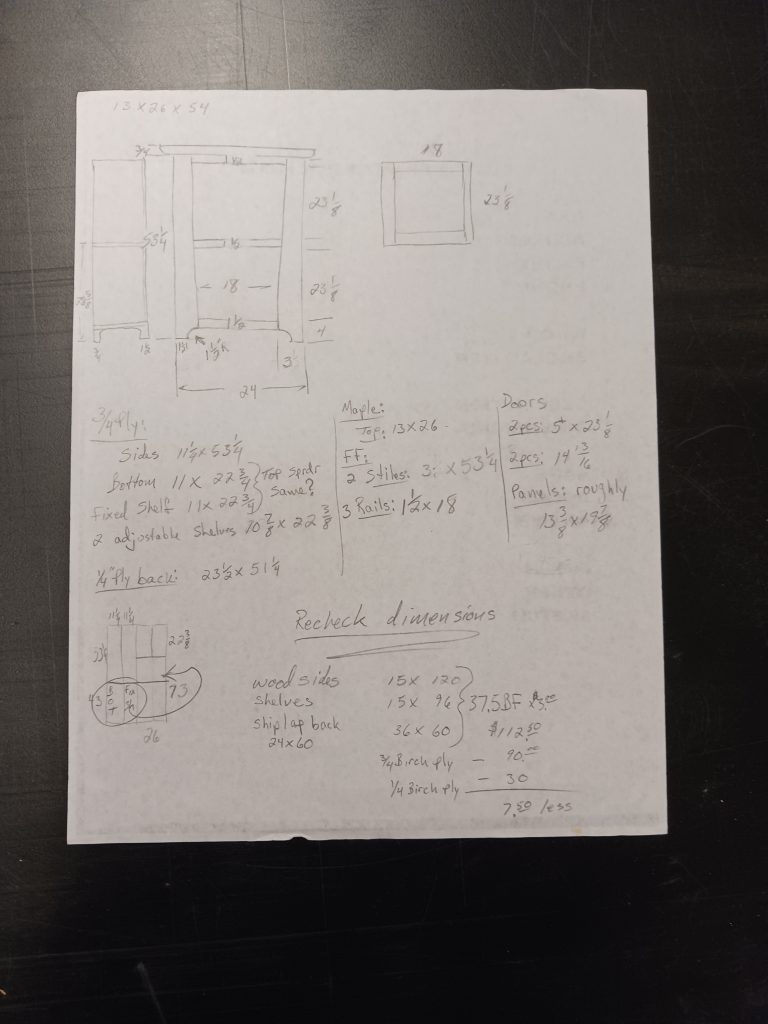 13 x 26 x 54
3/4
1/2
18
53 1/4
23 1/8
23 1/8
1/2
18
23 1/8
1 1/2
4
3/4
1 1/2
1 1/2
1 1/2" R
3
24
3/4 Ply:
Sides 11 1/4 x 53 1/4
Bottom 11 x 22 3/4 } Top sprdr
Fixed Shelf 11 x 22 3/4 } same?
2 adjostable Shelves 10 7/8 x 22 3/8
1/4" Ply back: 23 1/2 x 51 1/4
Maple:
Top: 13 x 26
FF:
2 Stiles: 3 x 53 1/4
3 Rails: 1 1/2 x 18
Doors
2 pcs: 5 x 23 1/8
2 pcs: 14 3/16
Panels: roughly
13 3/8 x 19 7/8
Recheck dimensions
11 1/4 11 1/4
53 1/4
22 3/8
43
BOT
73
26
wood sides 15 x 120
shelves 15 x 96 } 37.5BF x 3.00
shiplap back 36 x 60 $112.50
24 x 60
3/4 Birch ply - 90.00
1/4 Birch ply - 30
7.50 less